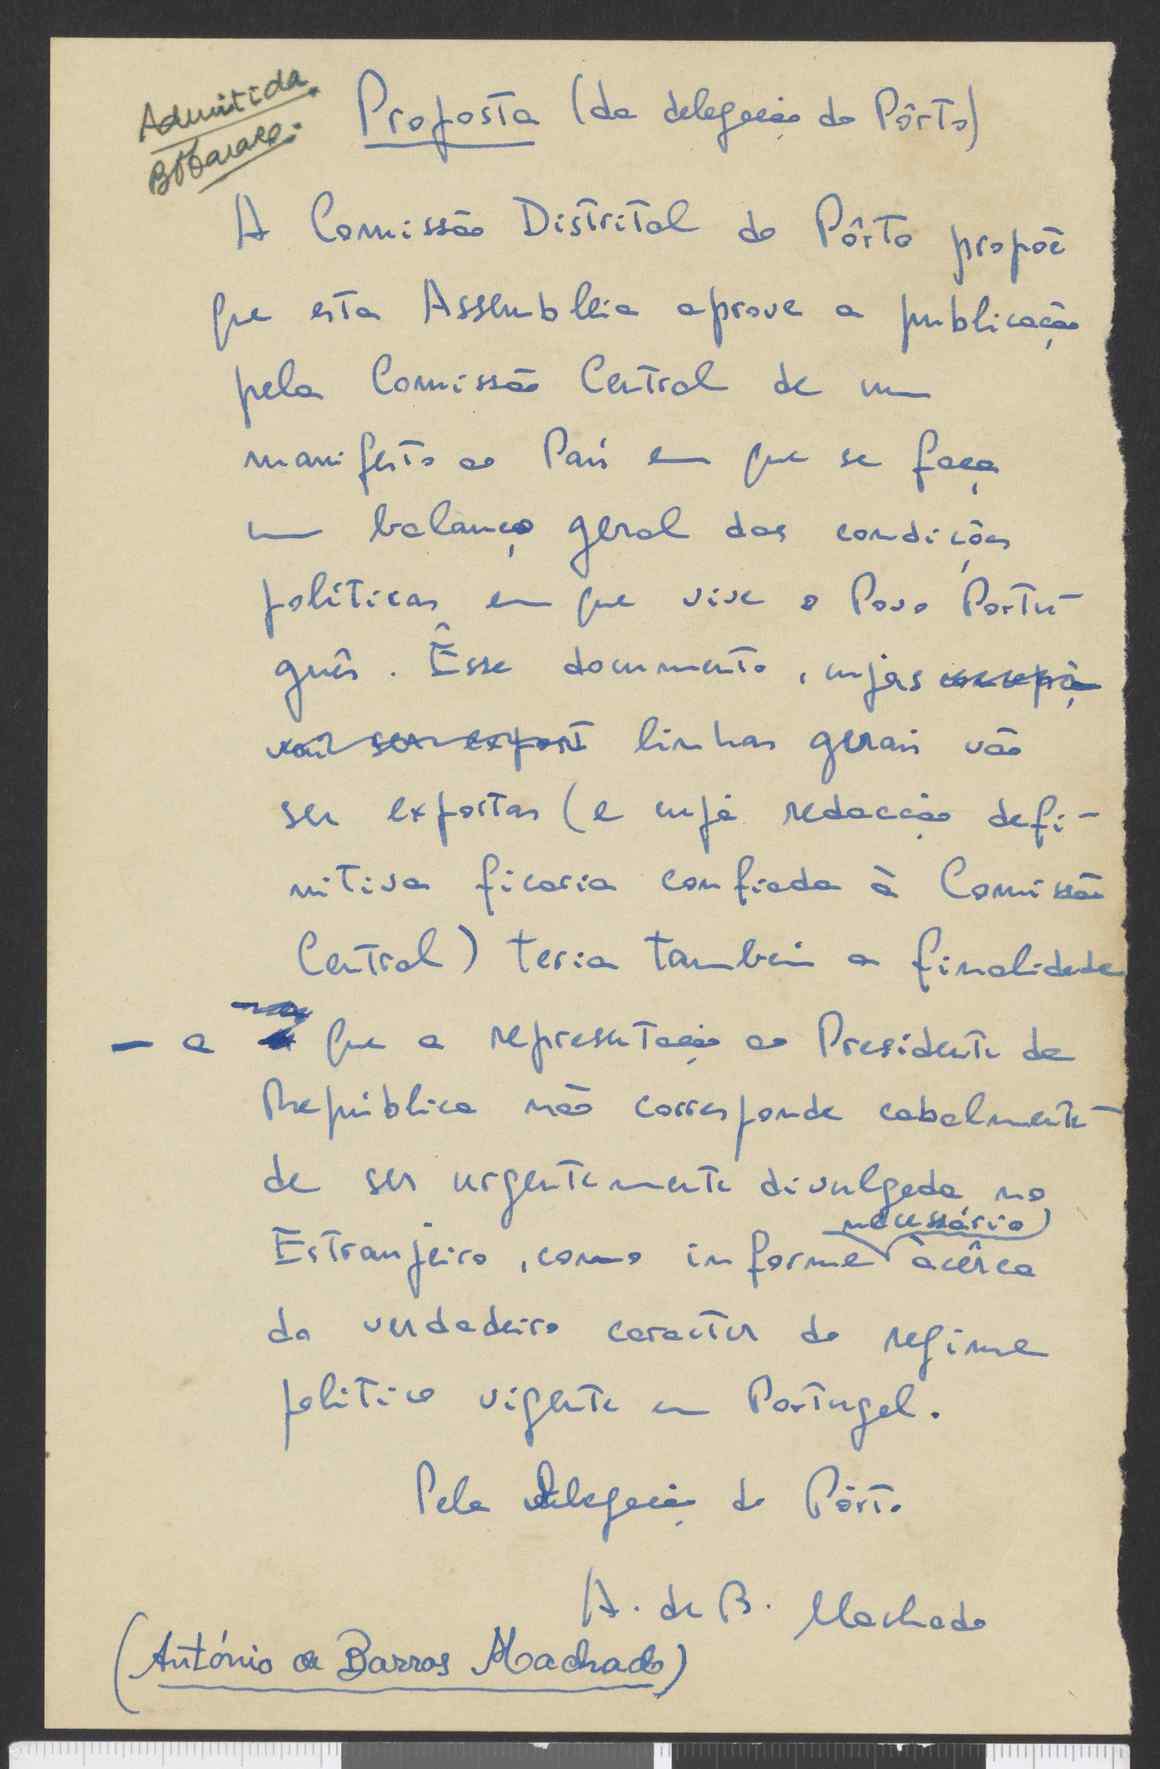 Admitida
Proposta (da delegação do Pôrto)
A Comissão Distrital do Pôrto propõe
que esta Assembleia aprove a publicação
pela Comissão Central de um
manifesto ao País em que se faça
um balanço geral das condições
políticas em que vive o Povo Portu-
guês. Êsse documento, cujas
vai ser expost linhas gerais vão
ser expostas (e cuja redacção defi-
nitiva ficaria confiada à Comissão
Central) teria também a finalidade
- a que a representação ao Presidente da
República não corresponde cabalmente -
de ser urgentemente divulgada no
necessário
Estranjeiro, como informe àcêrca
do verdadeiro caracter do regime
politico vigente em Portugal.
Pela delegação do Pôrto
A. de B. Machado
(António de Barros Machado)